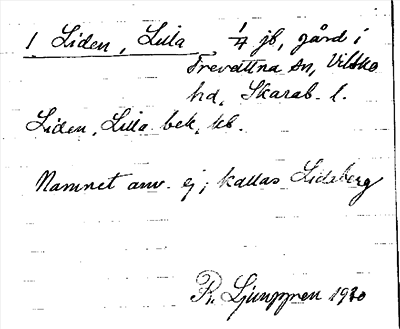 1 Liden, Lilla 1/4 jb, gård i
Trevattna sn, Vilske
hd, Skarab. l.
Liden, Lilla bek, kb.
Namnet anv. ej; kallas Lideberg
R. Ljunggren 1920